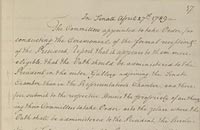 37
In Senate April 27th 1789
The Committee appointed to take Order for
conducting the Ceremonial of the formal reception &c
of the President, report that it appears to them more
eligible that the Oath should be administered to the
President in the outer Gallery adjoining the Senate
Chamber, than in the Representatives Chamber, and there
fore submit to the respective Houses the propriety of authori
zing their Committees to take Order as to the place where the
Oath shall be administered to the President, the